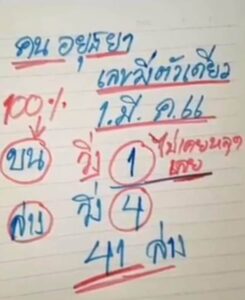 คน อยุธยา
เลขมีตัวเดียว
100% 1.มี.ค.66
บน วิ่ง 1 ไม่เคยหลุด
เลย
ล่าง วิ่ง 4
41 ล่าง